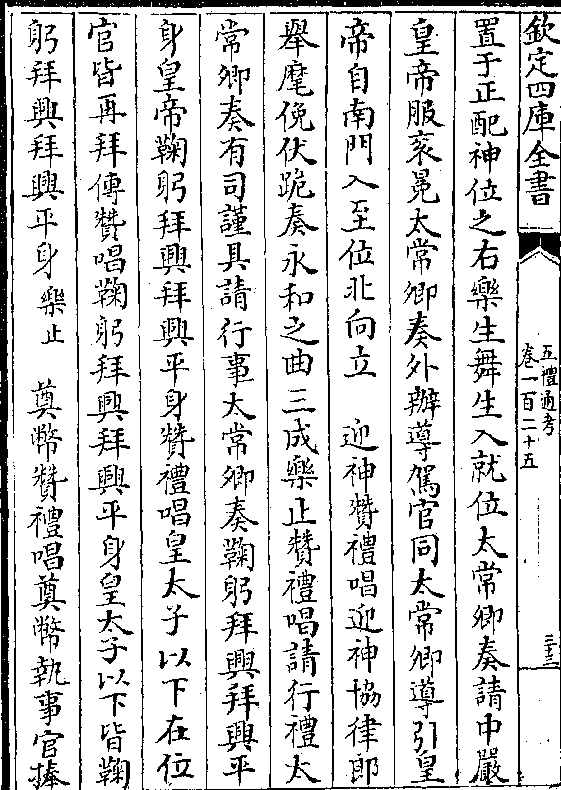 欽定四庫全書
五禮通考
卷一百二十五
三三
置于正配神位之右樂生舞生入就位太常卿奏請中嚴
皇帝服衮冕太常卿奏外辦導駕官同太常卿導引皇
帝自南門入至位北向立 迎神贊禮唱迎神協律郎
舉麾俛伏跪奏永和之曲三成樂止贊禮唱請行禮太
常卿奏有司謹具請行事太常卿奏鞠躬拜興拜興平
身皇帝鞠躬拜興拜興平身贊禮唱皇太子以下在位
官皆再拜傳贊唱鞠躬拜興拜興平身皇太子以下皆鞠
躬拜興拜興平身樂止 奠幣贊禮唱奠幣執事官捧